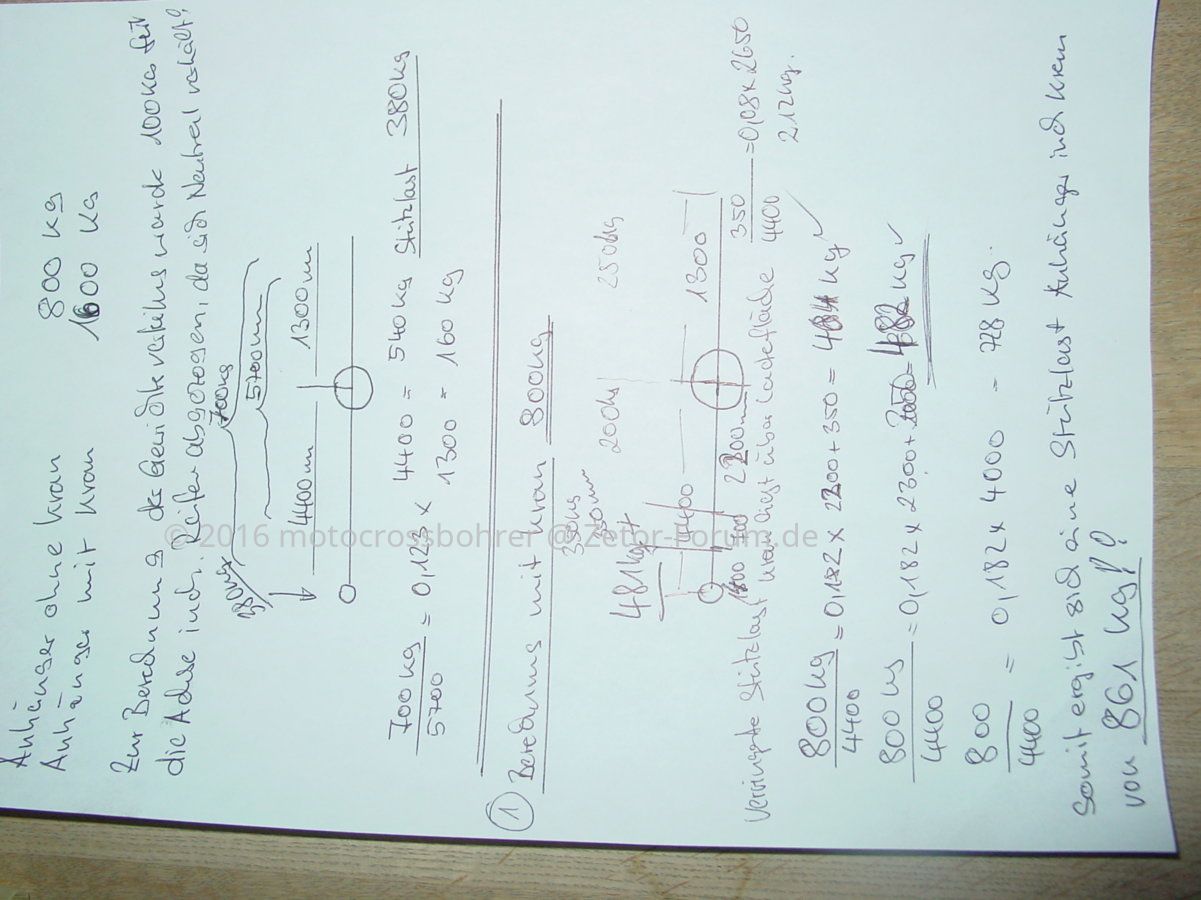 Anhänger ohne Kran 800 kg
Anhänger mit Kran 1600 kg
Zur Berechnung des Gewichtes wurde 100 kg für
die Achse incl. Reifen abgezogen, da sich Neutral verhält?
380kg 700kg
5700mm
4400mm 1300mm
700kg / 5700 = 0,123 x 4400 = 540 kg Stützlast 380kg
1300 = 160 kg
① Berechnung mit Kran 800kg
350kg
200kg 250kg
481kg
4400 1300
400 2200mm
350 / 4400 = 0,08 x 2650
212kg.
Verringerte Stützlast Kran liegt über Ladefläche
800kg / 4400 = 0,182 x 2200 + 350 = 484 kg ✓
800 kg / 4400 = 0,182 x 2300 + = 482 kg ✓
800 / 4400 = 0,182 x 4000 = 728 kg.
Somit ergibt sich eine Stützlast Anhänger incl Kran
von 861 kg!?
© 2016 motocrossbohrer @Zetor-Forum.de